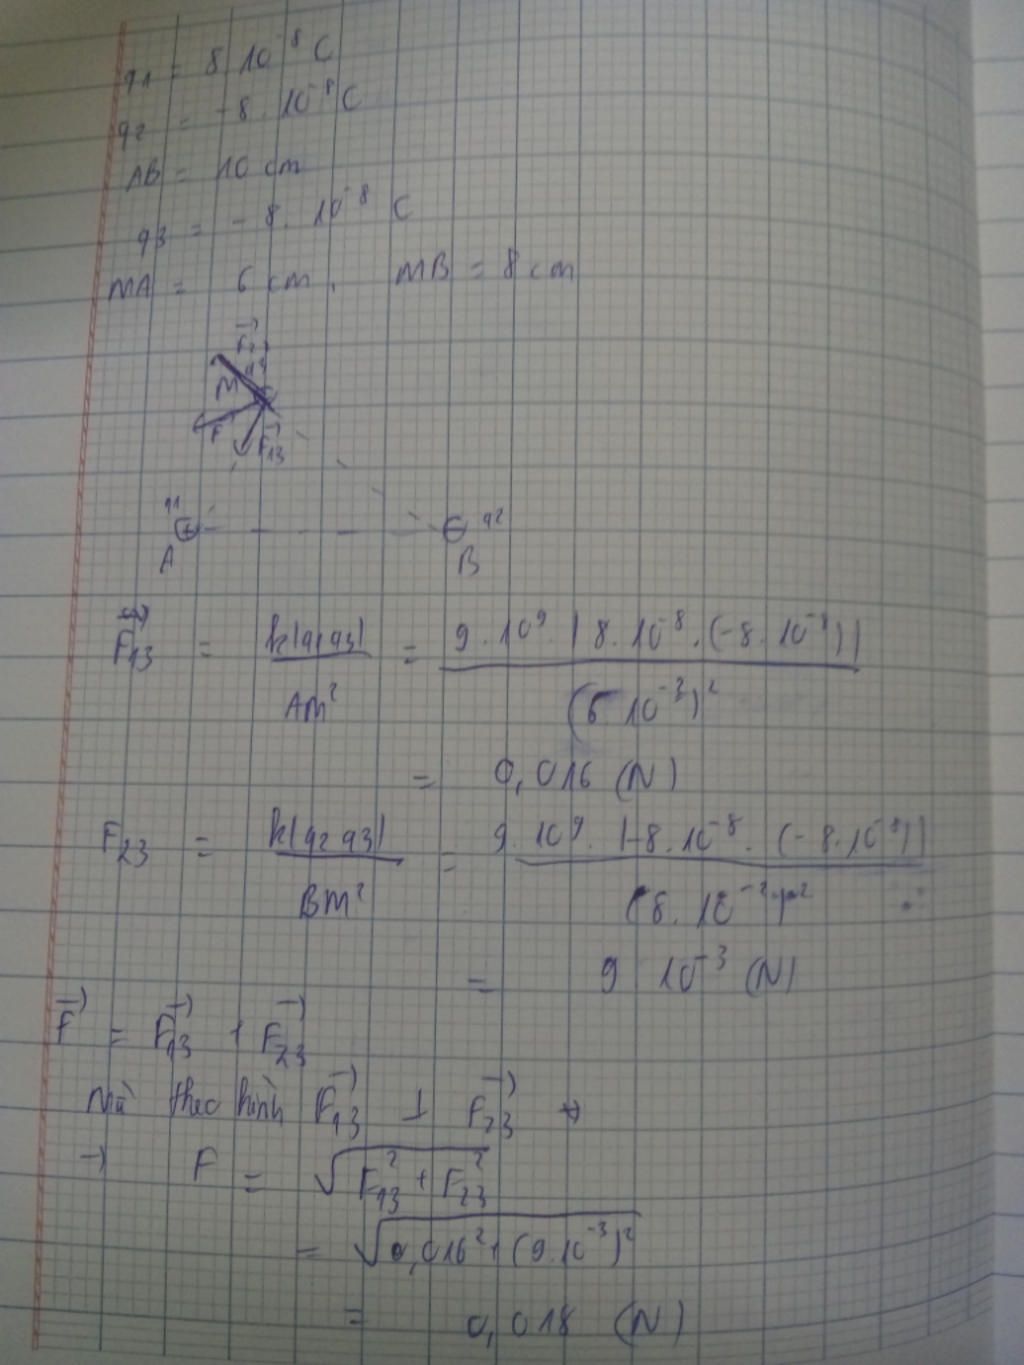 q1 = 8 10⁻⁸ C
q2 = -8. 10⁻⁸ C
AB = 10 cm
q3 = -8. 10⁻⁸ C
MA = 6 cm, MB = 8 cm
F₂₃→
M
F→ F₁₃→
q1 q2
A B
F₁₃→ = k|q1q3| / AM² = 9. 10⁹. |8. 10⁻⁸. (-8. 10⁻⁸)| / (6 10⁻²)²
= 0,016 (N)
F₂₃ = k|q2q3| / BM² = 9. 10⁹. |-8. 10⁻⁸. (-8. 10⁻⁸)| / (8. 10⁻²)²
= 9 10⁻³ (N)
F→ = F₁₃→ + F₂₃→
Mà theo hình F₁₃→ ⊥ F₂₃→ →
→ F = √(F₁₃² + F₂₃²)
= √(0,016² + (9.10⁻³)²)
= 0,018 (N)